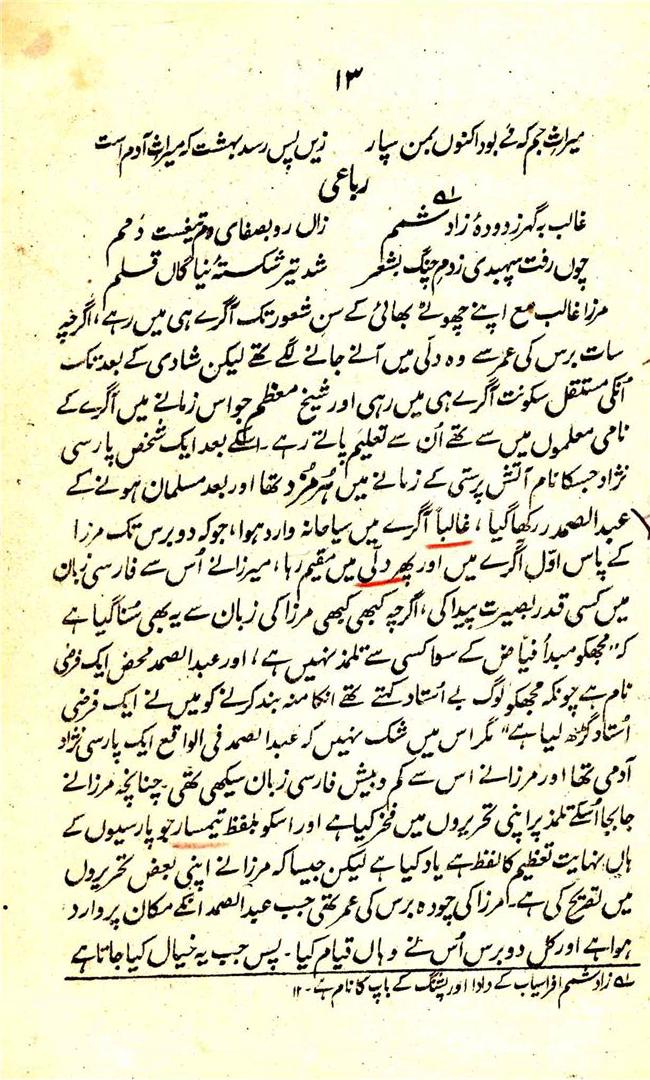 ۱۳
میراثِ جم کہ مے بود اکنوں بمن سپار زیں پس رسد بہشت کہ میراثِ آدم است
رباعی
غالب بہ گہر ز دودۂ زاد شمم ؎۱ زاں رو بصفای دم تیغست دمم
چوں رفت سپہبدی زدم چنگ بشعر شد تیر شکستۂ نیاگاں قلمم
مرزا غالب مع اپنے چھوٹے بھائی کے سن شعور تک آگرے ہی میں رہے، اگرچہ
سات برس کی عمر سے وہ دلّی میں آنے جانے لگے تھے لیکن شادی کے بعد تک
اُنکی مستقل سکونت آگرے ہی میں رہی اور شیخ معظم جو اس زمانے میں آگرے کے
نامی معلموں میں سے تھے اُن سے تعلیم پاتے رہے۔ اسکے بعد ایک شخص پارسی
نژاد جسکا نام آتش پرستی کے زمانے میں ہُرمُزد تھا اور بعد مسلمان ہونے کے
عبد الصمد رکھا گیا، غالباً آگرے میں سیاحانہ وارد ہوا، جو کہ دو برس تک مرزا
کے پاس اوّل آگرے میں اور پھر دلّی میں مقیم رہا، میرزا نے اُس سے فارسی زبان
میں کسی قدر بصیرت پیدا کی، اگرچہ کبھی کبھی مرزا کی زبان سے یہ بھی سُنا گیا ہے
کہ "مجھکو مبدأ فیّاض کے سوا کسی سے تلمذ نہیں ہے، اور عبد الصمد محض ایک فرضی
نام ہے چونکہ مجھکو لوگ بے اُستاد کہتے تھے انکا منہ بند کرنے کو میں نے ایک فرضی
اُستاد گڑھ لیا ہے" مگر اس میں شک نہیں کہ عبد الصمد فی الواقع ایک پارسی نژاد
آدمی تھا اور مرزا نے اس سے کم و بیش فارسی زبان سیکھی تھی۔ چنانچہ مرزا نے
جابجا اُسکے تلمذ پر اپنی تحریروں میں فخر کیا ہے اور اسکو بلفظ تیمسار جو پارسیوں کے
ہاں نہایت تعظیم کا لفظ ہے یاد کیا ہے لیکن جیسا کہ مرزا نے اپنی بعض تحریروں
میں تصریح کی ہے۔ مرزا کی چودہ برس کی عمر تھی جب عبد الصمد انکے مکان پر وارد
ہوا ہے اور کل دو برس اُس نے وہاں قیام کیا۔ پس جب یہ خیال کیا جاتا ہے
؎۱ زادشم افراسیاب کے دادا اور پشنگ کے باپ کا نام ہے۔ ۱۲